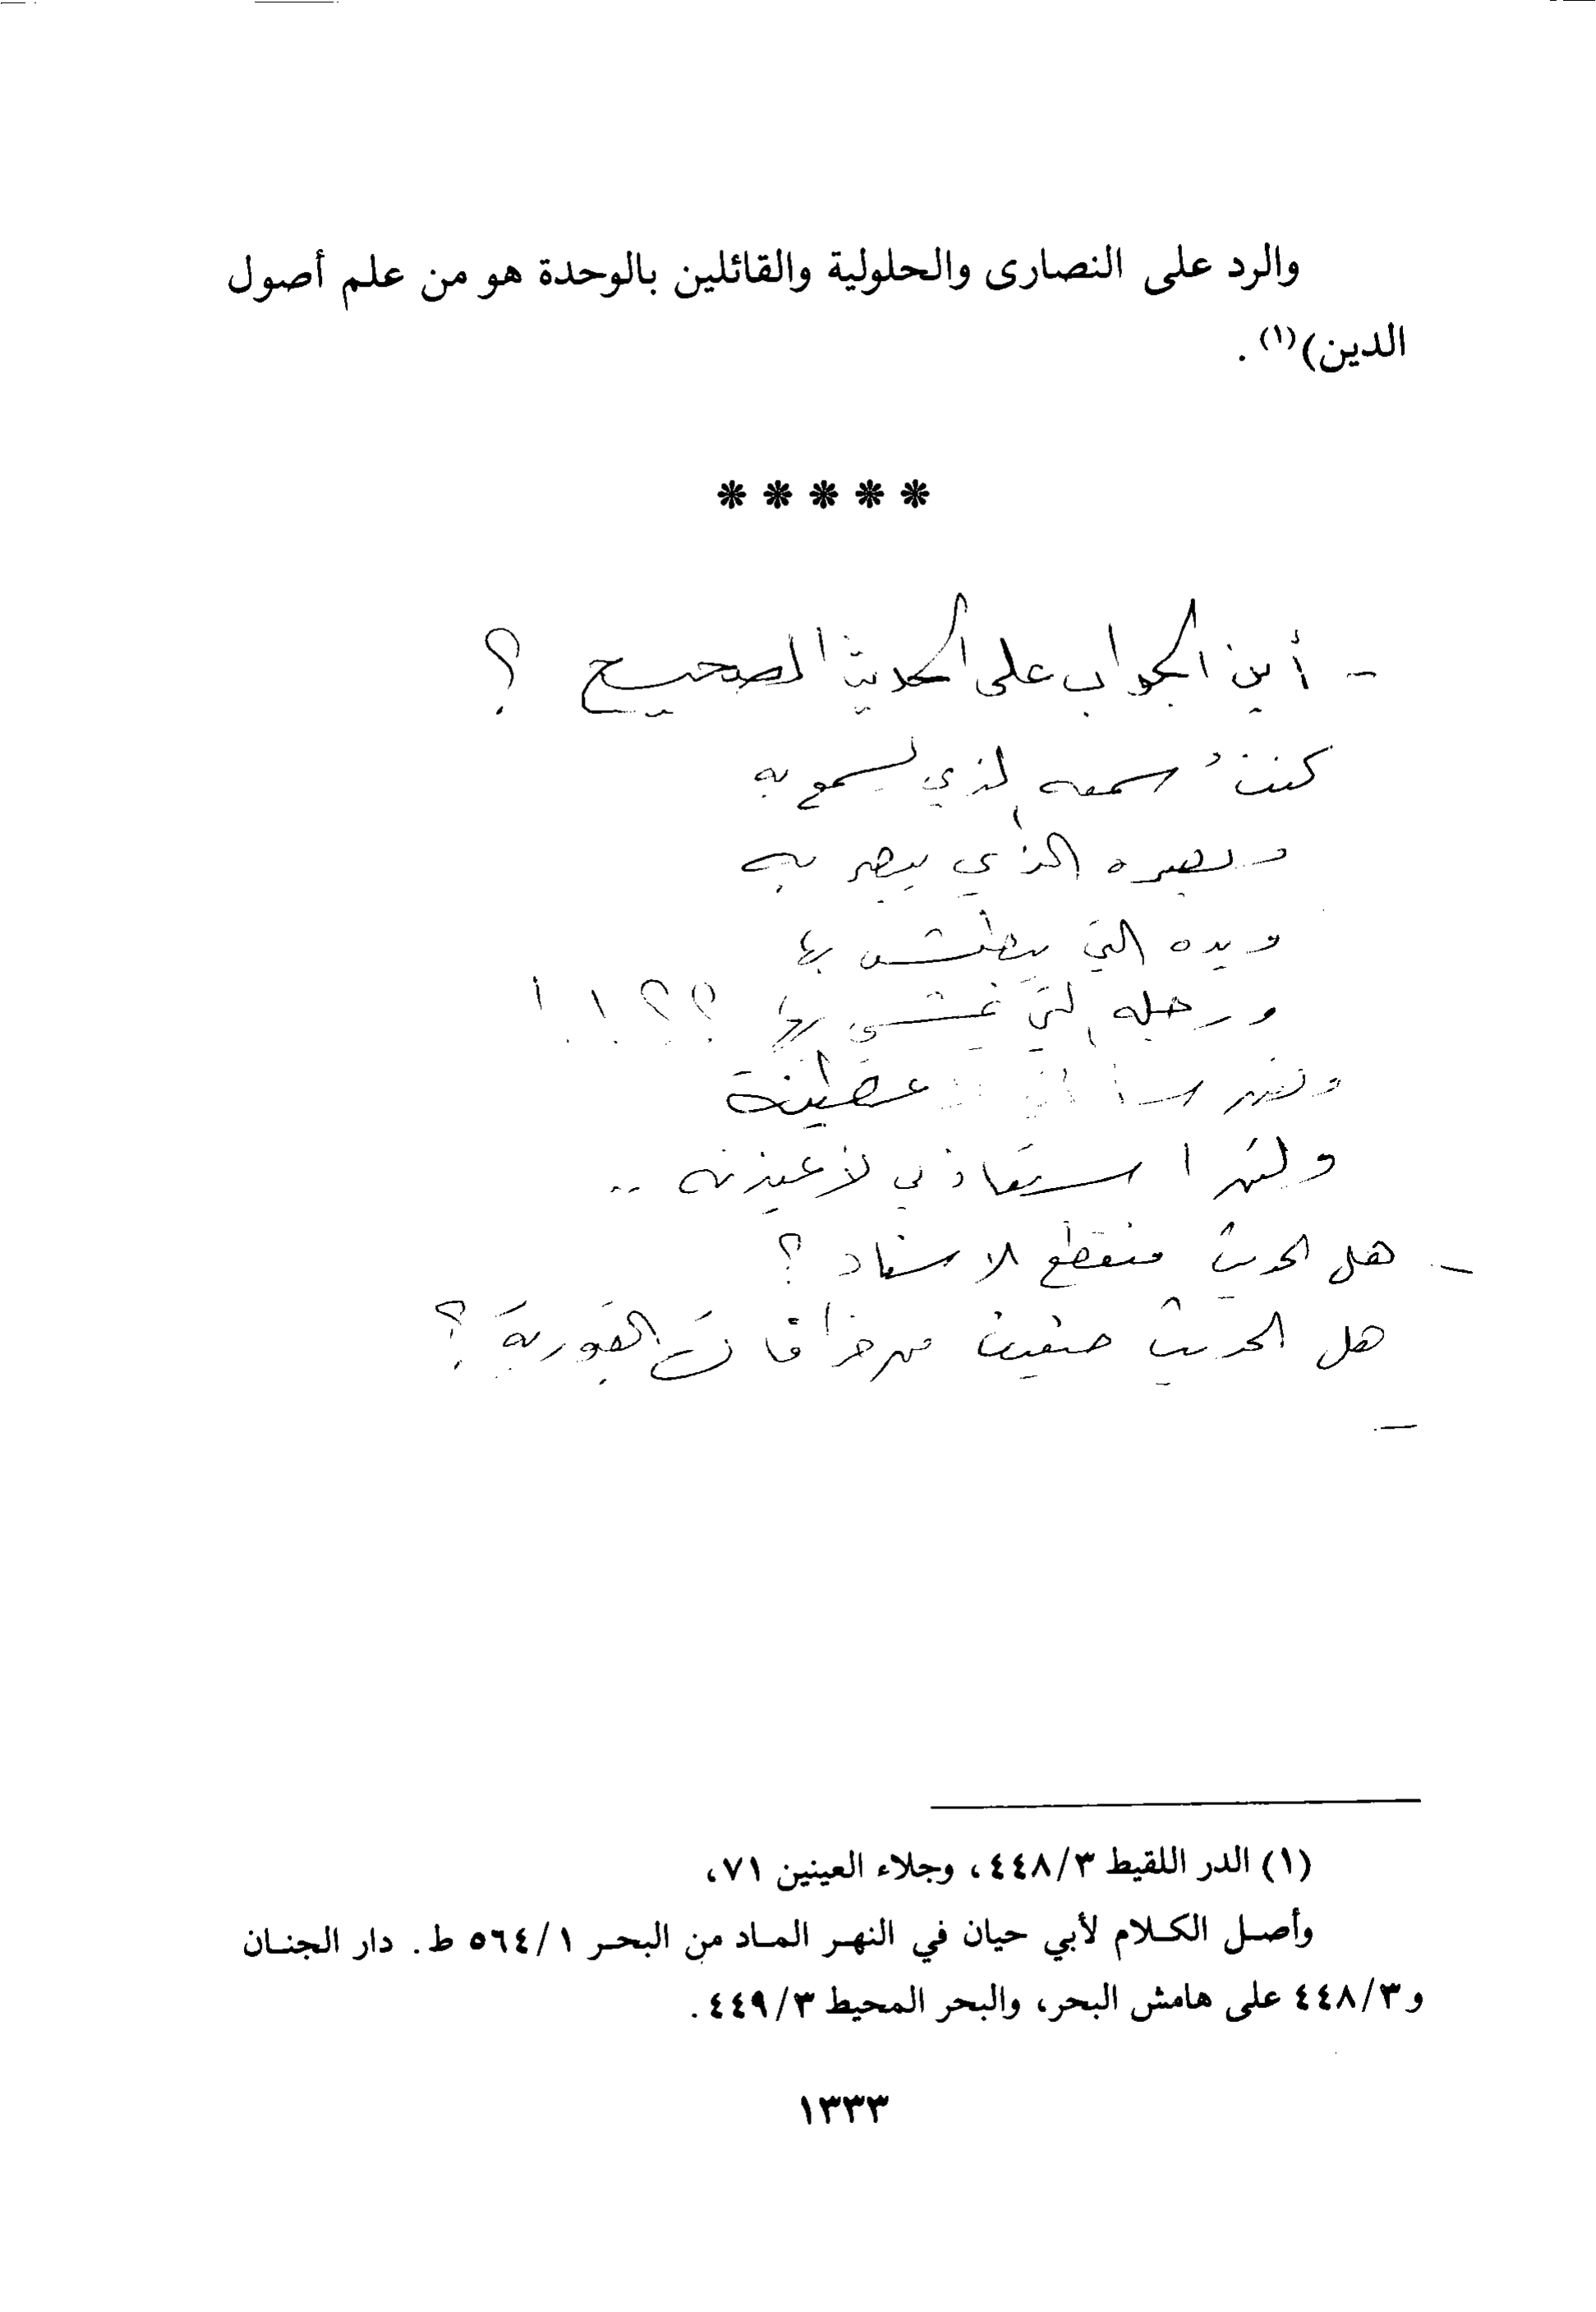 والرد على النصارى والحلولية والقائلين بالوحدة هو من علم أصول
الدين)(١) .
*****
- أين الجواب على الحديث الصحيح ؟
كنتُ سمعه الذي يسمع به
وبصره الذي يبصر به
ويده التي يبطش بها
ورجله التي يمشي بها ؟؟!!
ولئن سألني لأعطينه
ولئن استعاذني لأعيذنه ..
- هل الحديث منقطع الاسناد ؟
هل الحديث ضعيف من خرافات ؟
-
(١) الدر اللقيط ٤٤٨/٣، وجلاء العينين ٧١،
وأصل الكلام لأبي حيان في النهر الماد من البحر ٥٦٤/١ ط. دار الجنان
و٤٤٨/٣ على هامش البحر، والبحر المحيط ٤٤٩/٣.
١٣٣٣